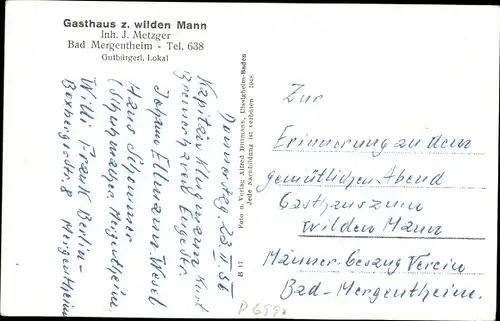 Gasthaus z. wilden Mann
Inh. J. Metzger
Bad Mergentheim - Tel. 638
Gutbürgerl. Lokal
Donnerstag. 23. II. 56
Kapitän Klingmann, Kurt
Bremerhaven
Johann Ellmann. Wesel
Hans
Mergentheim
Willi Frank Berlin-
Boxbergerstr. 8 Mergentheim
B 17
Foto u. Verlag Alfred Dittmann, Uissigheim-Baden
Jede Nachbildung ist verboten
Zur
Erinnerung an den
gemütlichen Abend
Gasthaus zum
wilden Mann
Männer-Gesang Verein
Bad-Mergentheim.